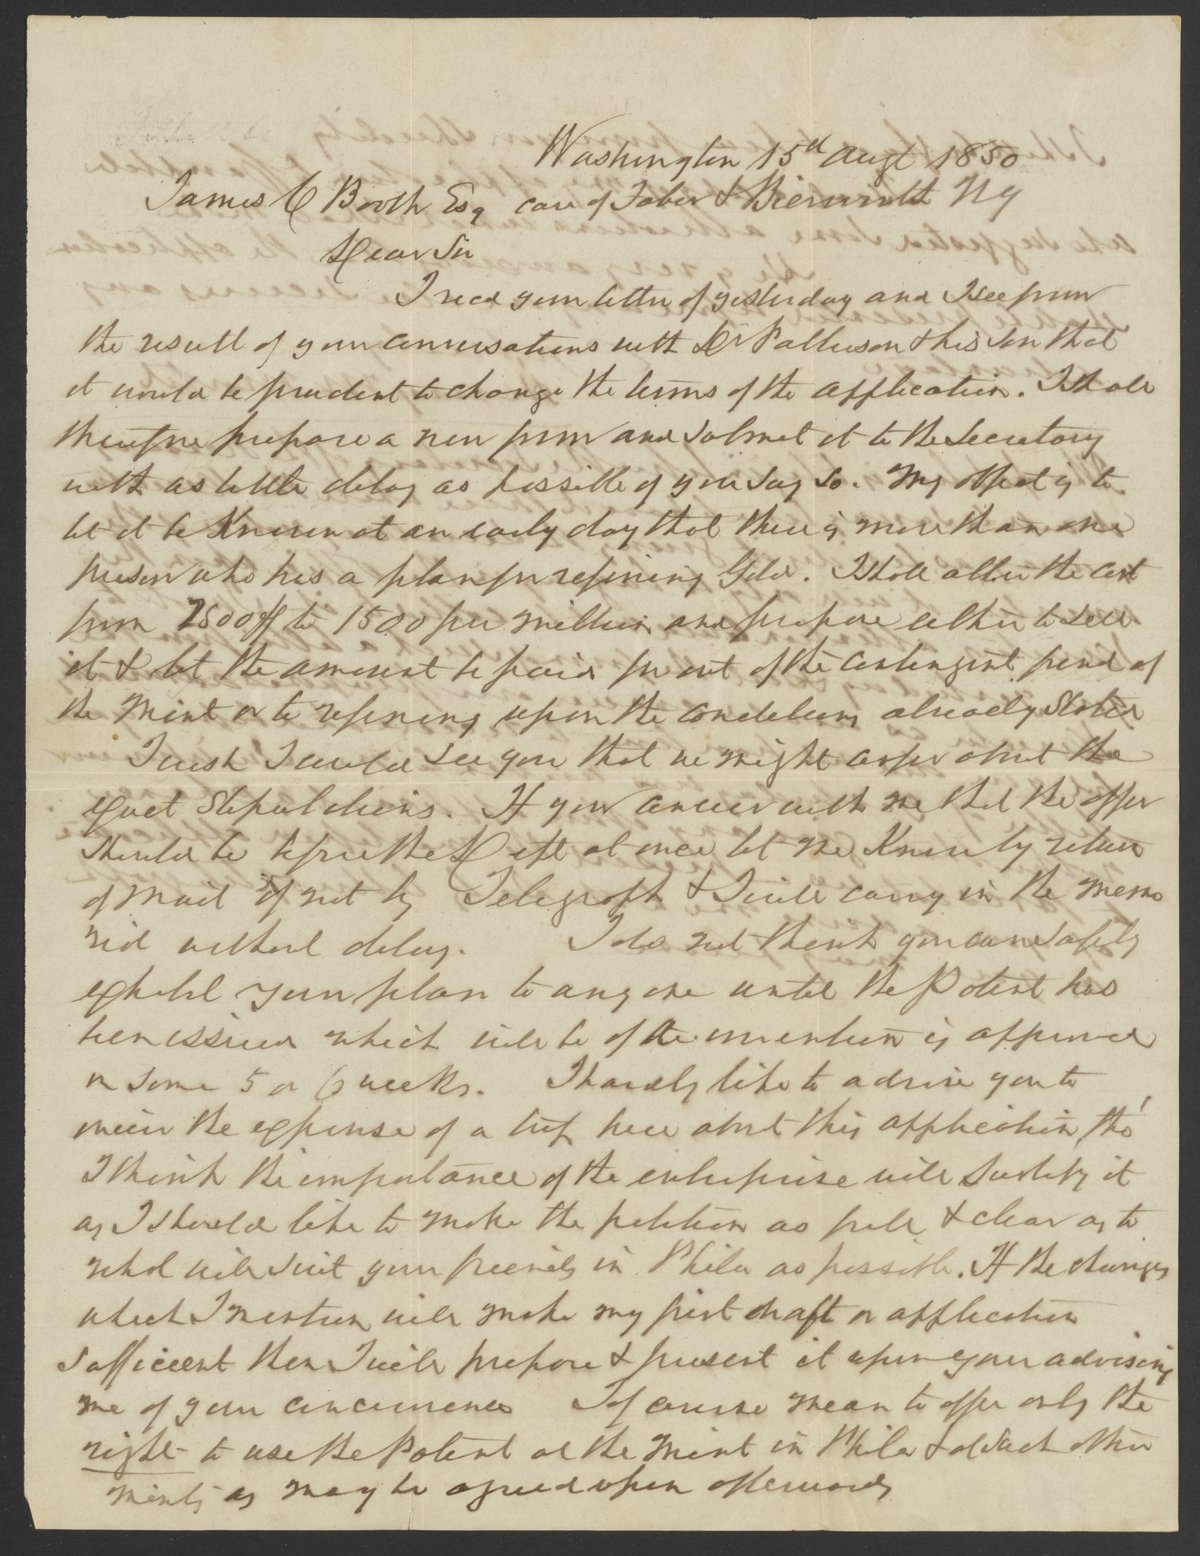 Washington 15th augt 1850
James C Booth Esq care of Faber & Bierwirth NY
Dear Sir
I recd your letter of yesterday and I see from
the result of your conversations with Dr Patterson & his son that
it would be prudent to change the terms of the application. I shall
therefore prepare a new form and submit it to the Secretary
with as little delay as possible if you say so. My object is to
let it be Known at an early day that there is more than one
person who has a plan for refining Gold. I shall alter the cost
from 2500$ to 1500 per million and propose either to sell
it & let the amount be paid for out of the contingent fund of
the Mint or to refining upon the conditions already stated
I wish I could see you that we might confer about the
exact stipulations. If you concur with me that the offer
should be before the Dept at once let me Know by return
of mail if not by Telegraph & I will carry in the memo
rial without delay. I do not think you can safely
exhibit your plan to any one until the Patent has
been issued which will be if the invention is approved
in some 5 or 6 weeks. I hardly like to advise you to
incur the expense of a trip here about this application tho'
I think the importance of the enterprise will justify it
as I should like to make the petition as full & clear as to
what will suit your friends in Phila as possible. If the changes
which I mention will make my first draft or application
sufficient then I will prepare & present it upon your advising
me of your concurrence I of course mean to offer only the
right to use the Patent at the Mint in Phila & at such other
mints as may be agreed upon afterwards